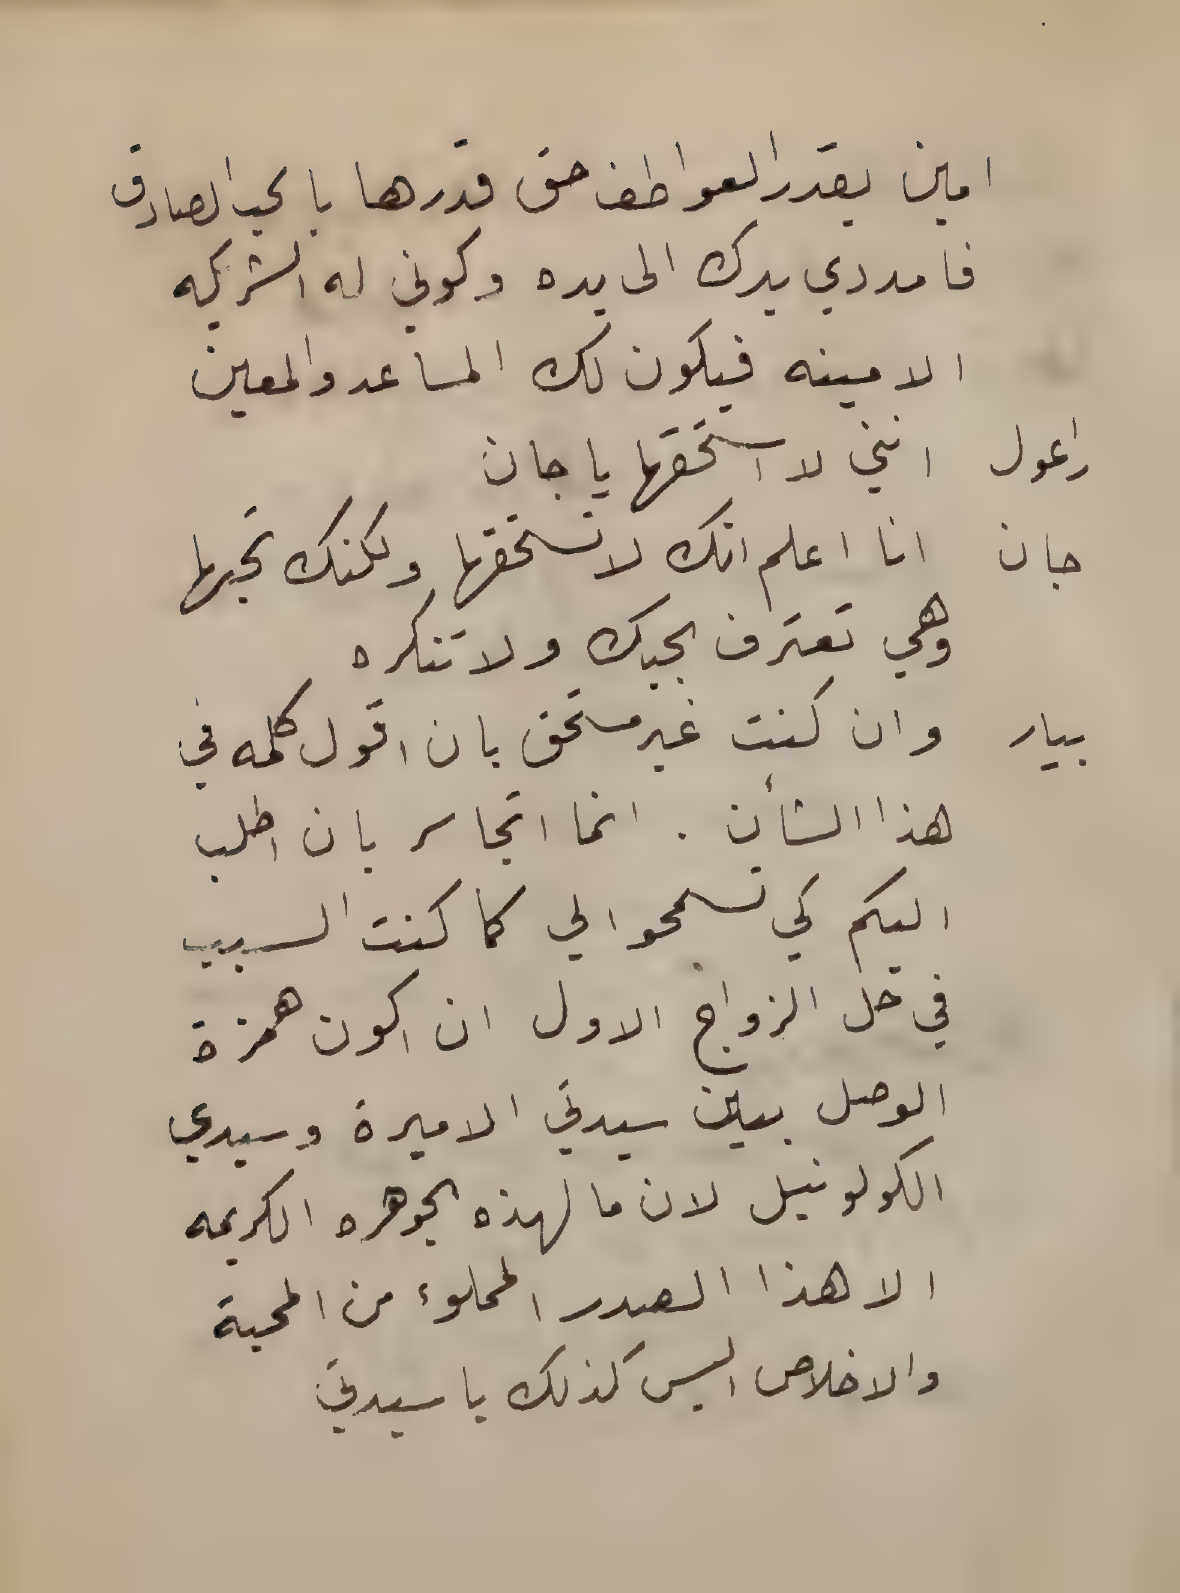 امين يقدر العواطف حق قدرها بالحب الصادق
فامددي يدك الى يده وكوني له الشريكه
الامينه فيكون لك المساعد والمعين
راعول انني لا استحقها يا جان
جان انا اعلم انك لا تستحقها ولكنك تحبها
وهي تعترف بحبك ولا تنكره
بيار وان كنت غير مستحق بان اقول كلمه في
هذا الشأن . انما اتجاسر بان اطلب
اليكم كي تسمحوا لي كما كنت السبب
في حل الزواج الاول ان اكون همزة
الوصل بيين سيدتي الاميرة وسيدي
الكولونيل لان ما لهذه الجوهره الكريمه
الا هذا الصدر المملوء من المحبة
والاخلاص اليس كذلك يا سيدتي